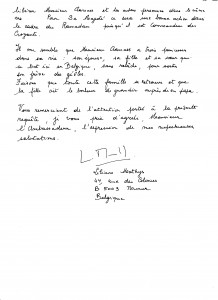 libérer Monsieur Aarrass et les autres personnes dans le même
cas. Sa Majesté a
le cadre du Ramadan puisqu'il est Commandeur des
Croyants.
Il me semble que Monsieur Aarrass a trois femmes
dans sa vie : son épouse, sa fille et sa sœur qui
se bat ici en Belgique, sans relâche, pour sortir
son frère des geôles.
Faisons que toute cette famille se retrouve et que
la fille ait le bonheur de grandir auprès de son papa.
Vous remerciant de l'attention portée à la présente
requête, je vous prie d'agréer, Monsieur
l'Ambassadeur, l'expression de mes respectueuses
salutations.
Liliane
rue des
B 5003 Namur
Belgique